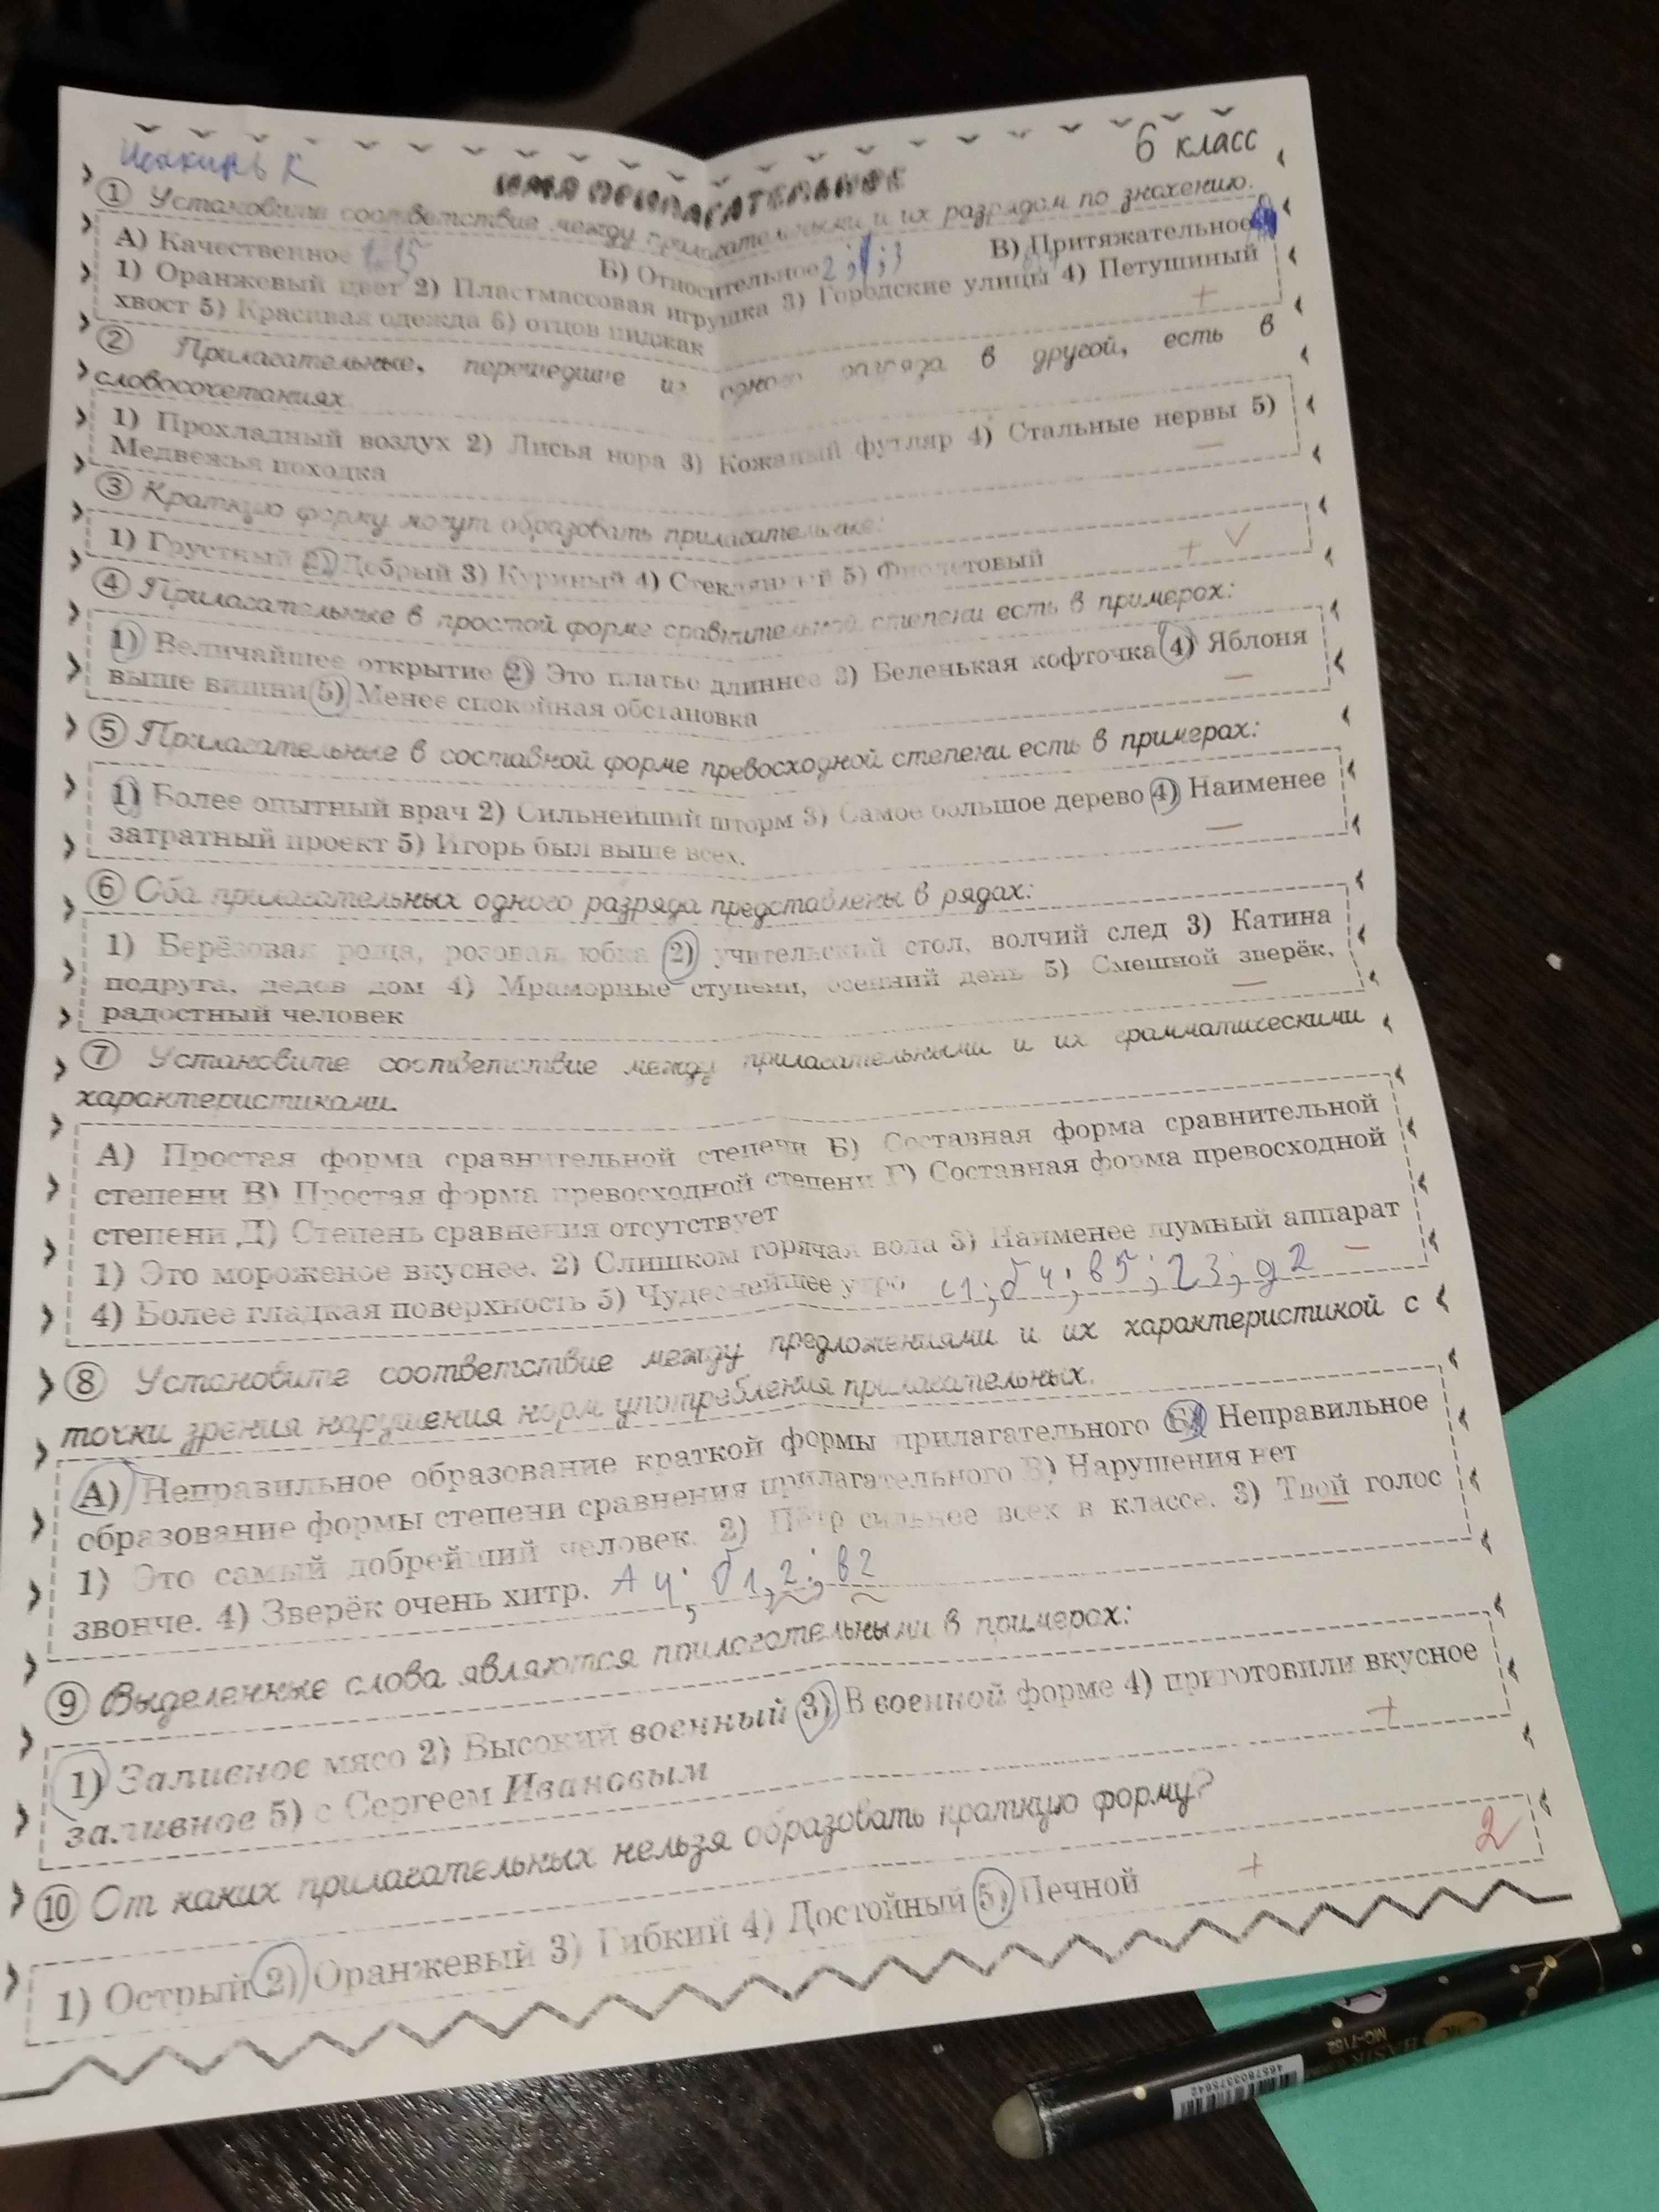 6 класс
ИМЯ ПРИЛАГАТЕЛЬНОЕ
① Установите соответствие между прилагательными и их разрядом по значению.
А) Качественное Б) Относительное 2; ; 3 В) Притяжательное
1) Оранжевый цвет 2) Пластмассовая игрушка 3) Городские улицы 4) Петушиный
хвост 5) Красивая одежда 6) отцов пиджак +
② Прилагательные, перешедшие из одного разряда в другой, есть в
словосочетаниях
1) Прохладный воздух 2) Лисья нора 3) Кожаный футляр 4) Стальные нервы 5)
Медвежья походка —
③ Краткую форму могут образовать прилагательные:
1) Грустный 2) Добрый 3) Куриный 4) Стеклянный 5) Фиолетовый + ✓
④ Прилагательные в простой форме сравнительной степени есть в примерах:
1) Величайшее открытие 2) Это платье длиннее 3) Беленькая кофточка 4) Яблоня
выше вишни 5) Менее спокойная обстановка —
⑤ Прилагательные в составной форме превосходной степени есть в примерах:
1) Более опытный врач 2) Сильнейший шторм 3) Самое большое дерево 4) Наименее
затратный проект 5) Игорь был выше всех. —
⑥ Оба прилагательных одного разряда представлены в рядах:
1) Берёзовая роща, розовая юбка 2) учительский стол, волчий след 3) Катина
подруга, дедов дом 4) Мраморные ступени, осенний день 5) Смешной зверёк,
радостный человек —
⑦ Установите соответствие между прилагательными и их грамматическими
характеристиками.
А) Простая форма сравнительной степени Б) Составная форма сравнительной
степени В) Простая форма превосходной степени Г) Составная форма превосходной
степени Д) Степень сравнения отсутствует
1) Это мороженое вкуснее. 2) Слишком горячая вода 3) Наименее шумный аппарат
4) Более гладкая поверхность 5) Чудеснейшее утро 1; б4; в5; г3; д2 —
⑧ Установите соответствие между предложениями и их характеристикой с
точки зрения нарушения норм употребления прилагательных.
А) Неправильное образование краткой формы прилагательного Б) Неправильное
образование формы степени сравнения прилагательного В) Нарушения нет
1) Это самый добрейший человек. 2) Пётр сильнее всех в классе. 3) Твой голос
звонче. 4) Зверёк очень хитр. А 4; б1,2; в2
⑨ Выделенные слова являются прилагательными в примерах:
1) Заливное мясо 2) Высокий военный 3) В военной форме 4) приготовили вкусное
заливное 5) с Сергеем Ивановым +
⑩ От каких прилагательных нельзя образовать краткую форму?
1) Острый 2) Оранжевый 3) Гибкий 4) Достойный 5) Печной + 2
MC-7152
4657803375642